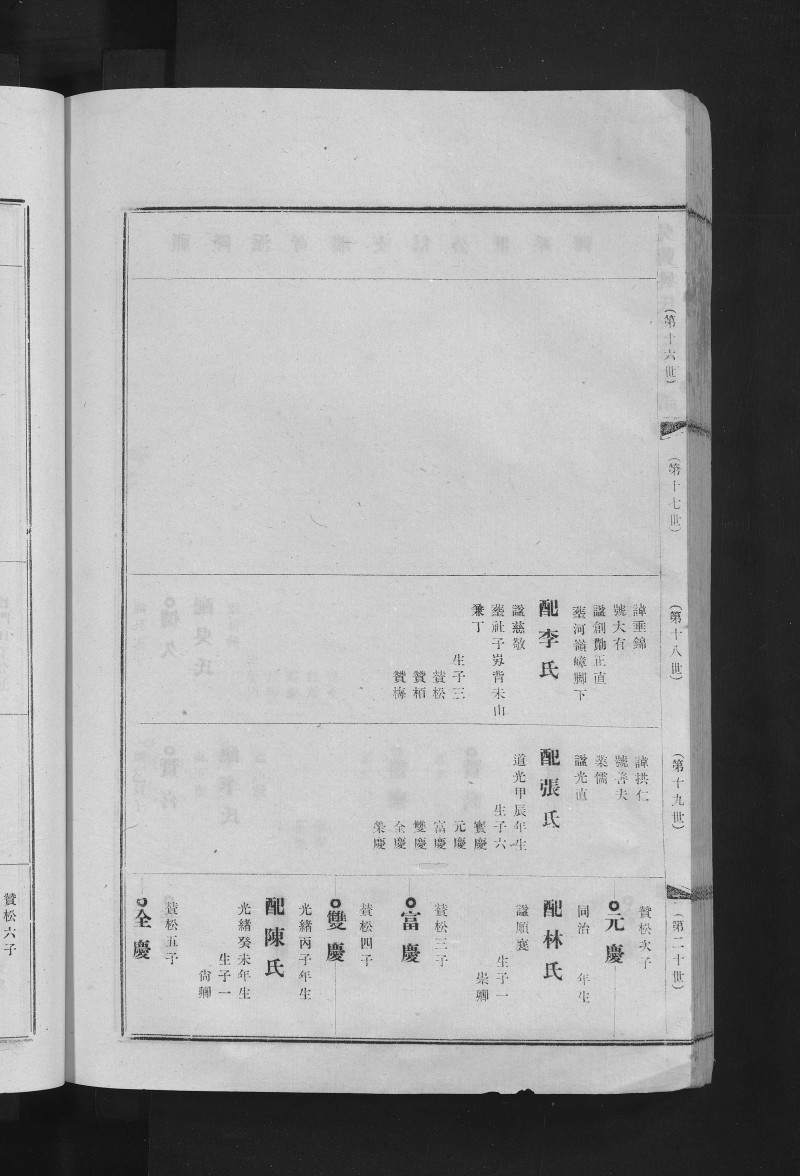 (第十六世)
(第十七世)
(第十八世)
諱垂錦
號大有
諡創勳正直
塟河嶺嶂脚下
配李氏
諡慈敬
塟社子岽背未山
兼丁
生子三
賛松
賛栢
賛梅
(第十九世)
諱拱仁
號善夫
業儒
諡光直
配張氏
道光甲辰年生
生子六
賓慶
元慶
富慶
雙慶
全慶
榮慶
(第二十世)
賛松次子
元慶
同治 年生
配林氏
諡順襄
生子一
崇卿
賛松三子
富慶
賛松四子
雙慶
光緒丙子年生
配陳氏
光緒癸未年生
生子一
尙卿
賛松五子
全慶
賛松六子